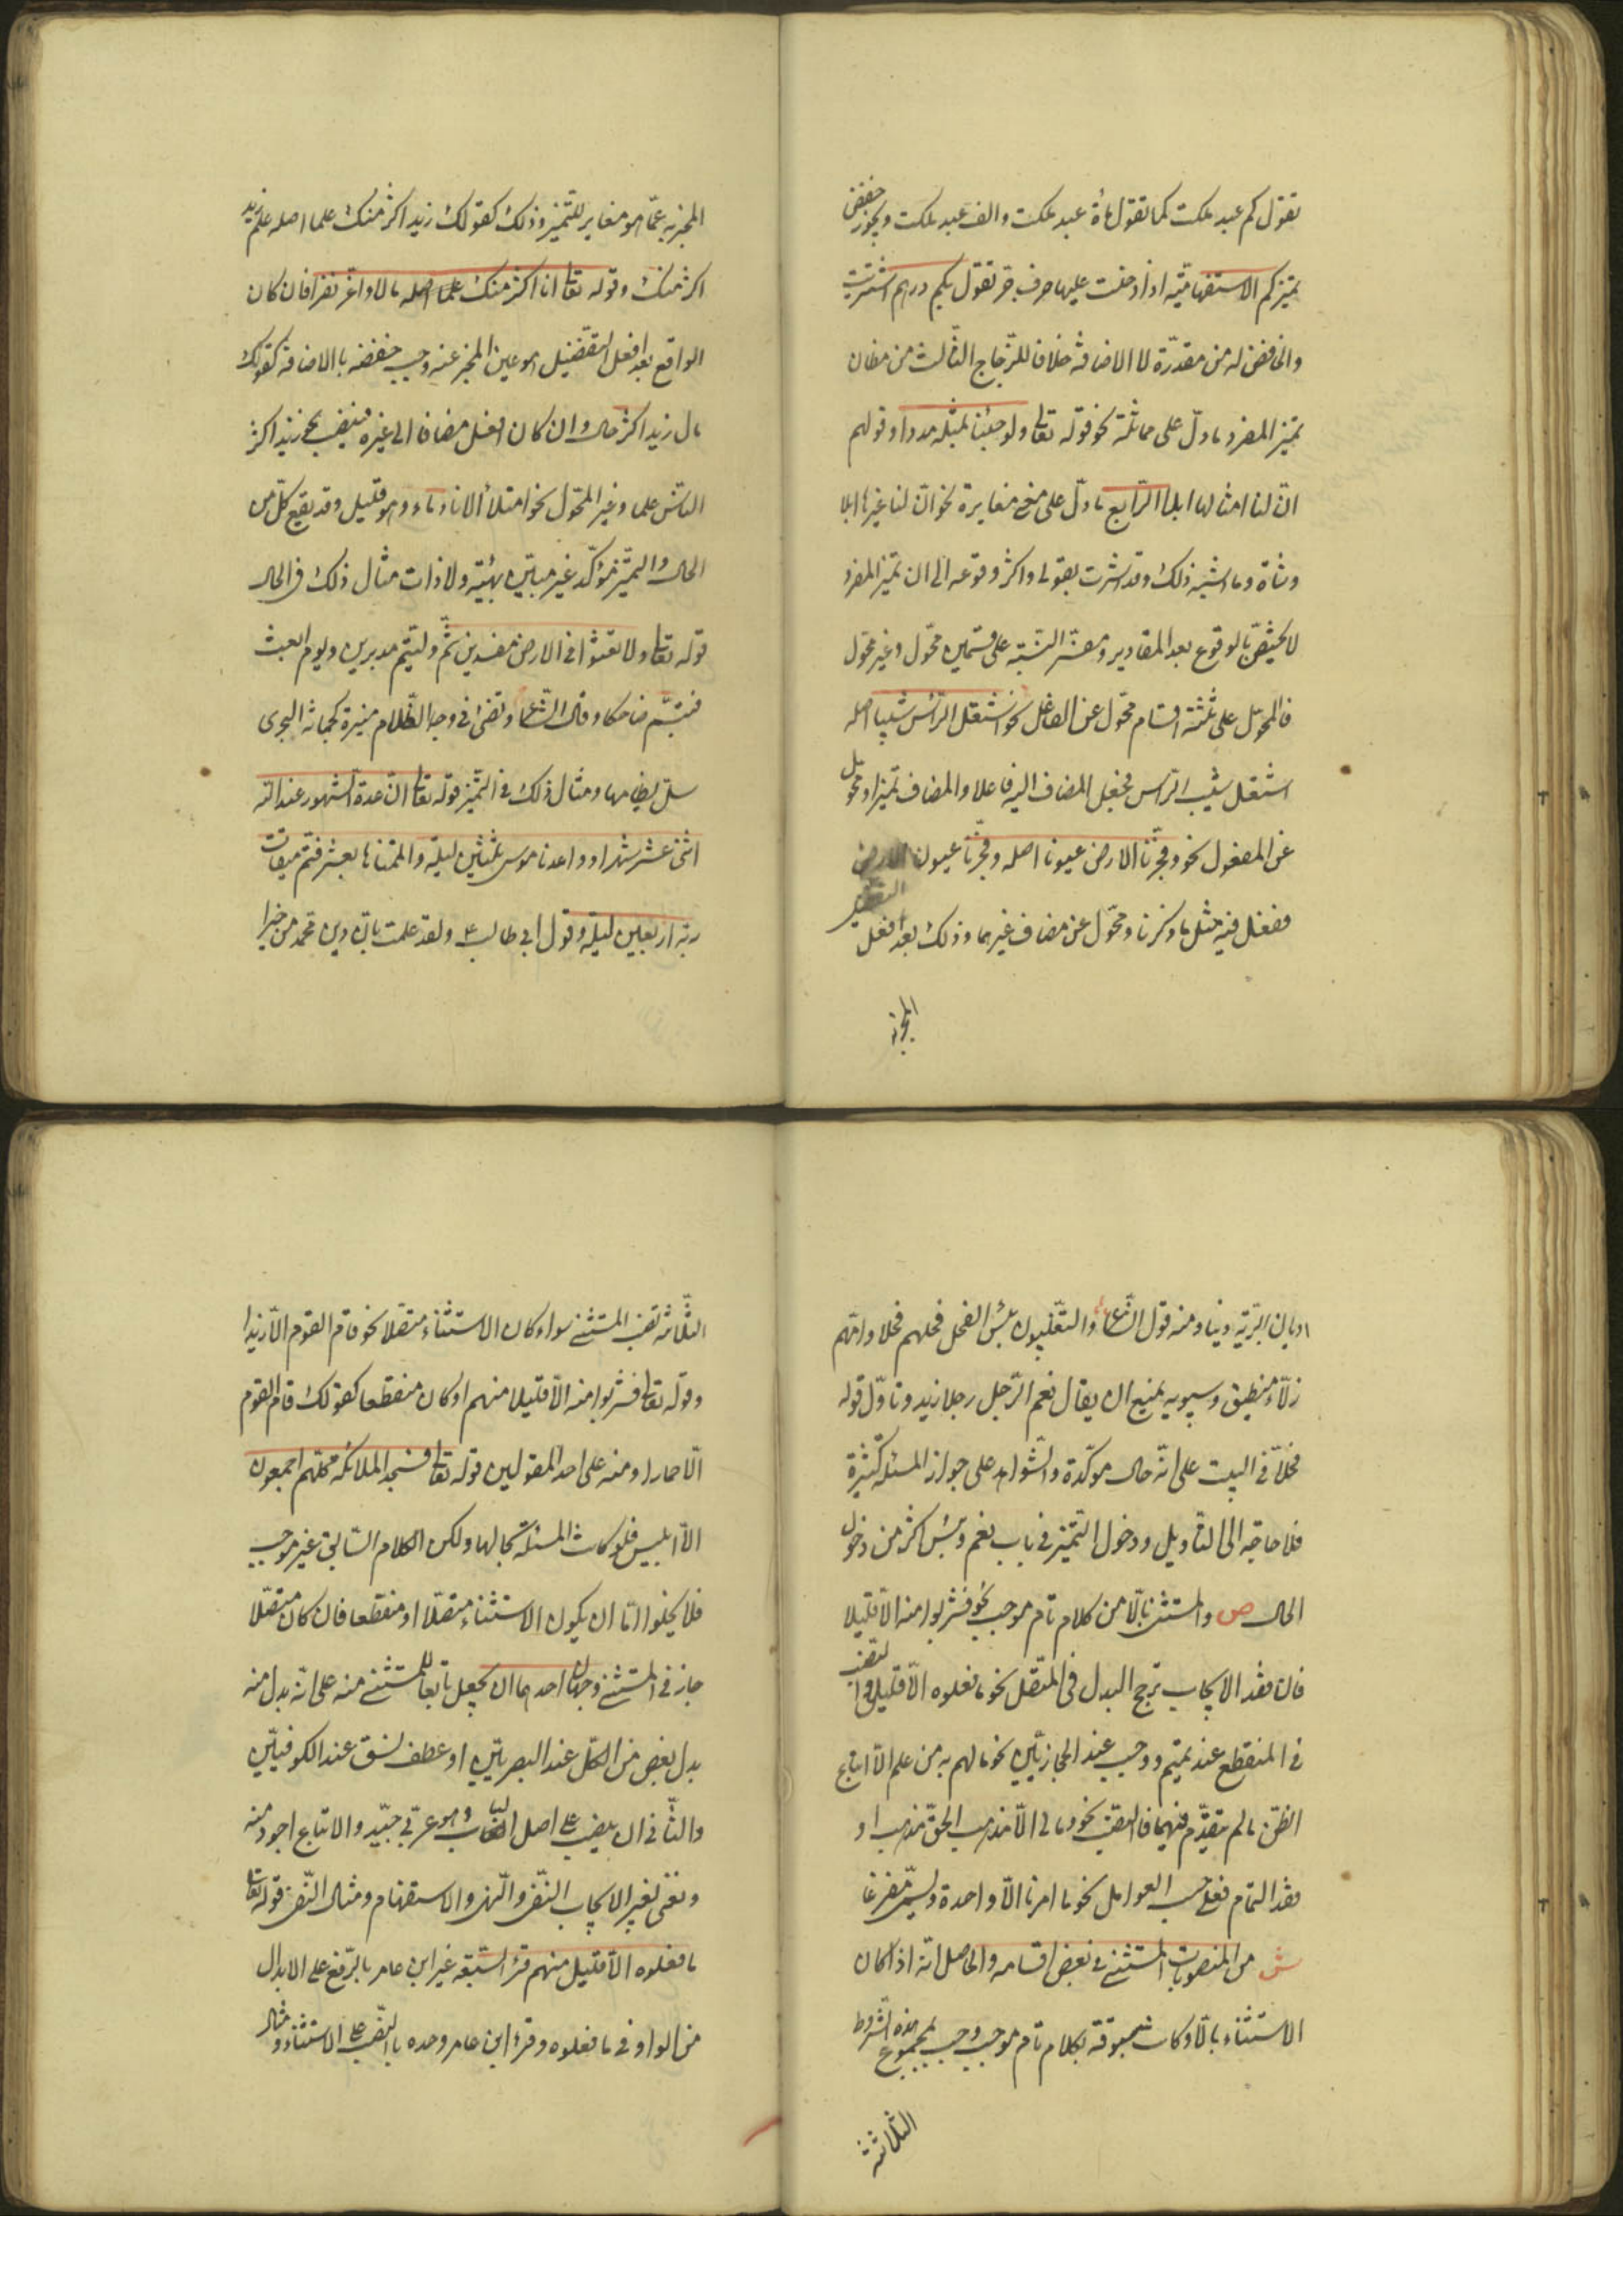 تقول كم عبد ملكت كما تقول مائة عبد ملكت والف عبد ملكت ويجوز خفض
تميز كم الاستفهاميّة اذا دخلت عليها حرف جر تقول بكم درهم اشتريت
والخافض له من مقدّرة لا الاضافة خلافا للزّجاج الثالث من مظان
تميز المفرد ما دلّ على مماثلة نحو قوله تعا ولو جئنا بمثله مددا وقولهم
انّ لنا امثالها ابلا الرّابع ما دلّ على مغايرة نحو انّ لنا غيرها ابلا
وشاة وما اشبه ذلك وقد اشرت بقولي واكثر وقوعه الى ان تميز المفرد
لا يختصّ بالوقوع بعد المقادير ومفسّر النّسبة على قسمين محوّل وغير محوّل
فالمحوّل على ثلثة اقسام محوّل عن الفاعل نحو اشتعل الرّأس شيبا اصله
اشتعل شيب الرّاس فجعل المضاف اليه فاعلا والمضاف تميزا ومحوّل
عن المفعول نحو وفجّرنا الارض عيونا اصله وفجّرنا عيون الارض
ففعل فيه مثل ما ذكرنا ومحوّل عن مضاف غيرهما وذلك بعد افعل التفضيل
المخبر به
المخبر به عمّا هو مغاير للتّميز وذلك كقولك زيد اكثر منك علما اصله علم زيد
اكثر منك وقوله تعا انا اكثر منك مالا واعز نفرا فان كان
الواقع بعد افعل التفضيل هو عين المخبر عنه وجب خفضه بالاضافة كقولك
مال زيد اكثر مال وان كان افعل مضافا الى غيره فينصب نحو زيد اكثر
النّاس علما وغير المحوّل نحو امتلأ الاناء ماء وهو قليل وقد يقع كلّ من
الحال والتميّز مؤكّد غير مبيّن بهيئة ولا ذات مثال ذلك في الحال
قوله تعا ولا تعثوا في الارض مفسدين ثمّ ولّيتم مدبرين ويوم ابعث
فتبسّم ضاحكا وقال الشّاعر وتضئ في وجه الظّلام منيرة كجمانة البحرى
سلّ نظامها ومثال ذلك في التّميز قوله تعا انّ عدة الشهور عند الله
اثنى عشر شهرا وواعدنا موسى ثلثين ليلة واتممناها بعشر فتمّ ميقات
ربّه اربعين ليلة وقول ابي طالب ع ولقد علمت بانّ دين محمد من خير
اديان البريّة دينا ومنه قول الشّاعر والتّغلبيون بئس الفحل فحلهم فحلا وامّهم
زلّاء منطيق وسيبويه يمنع ان يقال نعم الرّجل رجلا زيد وتأوّل قوله
فحلا في البيت على انّه حال مؤكّدة والشّواهد على جواز المسئلة كثيرة
فلا حاجة الى التأويل ودخول التميز في باب نعم وبئس اكثر من دخول
الحال ص والمستثنى بالّا من كلام تام موجب نحو فشربوا منه الّا قليلا
فان فقد الايجاب ترجّح البدل في المتّصل نحو ما فعلوه الّا قليل والنصب
في المنقطع عند تميم ووجب عند الحجازيّين نحو ما لهم به من علم الّا اتباع
الظنّ ما لم يتقدّم فيهما فالنصب نحو وما لي الّا مذهب الحقّ مذهب او
فقد التمام فعلى حسب العوامل نحو ما امرنا الّا واحدة ويسمّى مفرغا
ش من المنصوبات المستثنى في بعض اقسامه والحاصل انّه اذا كان
الاستثناء بالّا وكانت مسبوقة بكلام تام موجب وجب بمجموع هذه الشّروط
الثّلاثة
الثّلاثة نصب المستثنى سواء كان الاستثناء متّصلا نحو قام القوم الّا زيدا
وقوله تعا فشربوا منه الّا قليلا منهم او كان منقطعا كقولك قام القوم
الّا حمارا ومنه على احد القولين قوله تعا فسجد الملائكة كلّهم اجمعون
الّا ابليس فلو كانت المسئلة بحالها ولكن الكلام السّابق غير موجب
فلا يخلوا امّا ان يكون الاستثناء متّصلا او منقطعا فان كان متّصلا
جاز في المستثنى وجهان احدهما ان يجعل تابعا للمستثنى منه على انّه بدل منه
بدل بعض من الكلّ عند البصريّين او عطف نسق عند الكوفيّين
والثّاني ان ينصب على اصل الباب وهو عربّي جيّد والاتباع اجود منه
ونعنى بغير الايجاب النّفي والنّهى والاستفهام ومثال النّفي قوله تعا
ما فعلوه الّا قليل منهم قرأ السّبعة غير ابن عامر بالرّفع على الابدال
من الواو في ما فعلوه وقرأ ابن عامر وحده بالنّصب على الاستثناء ومثال